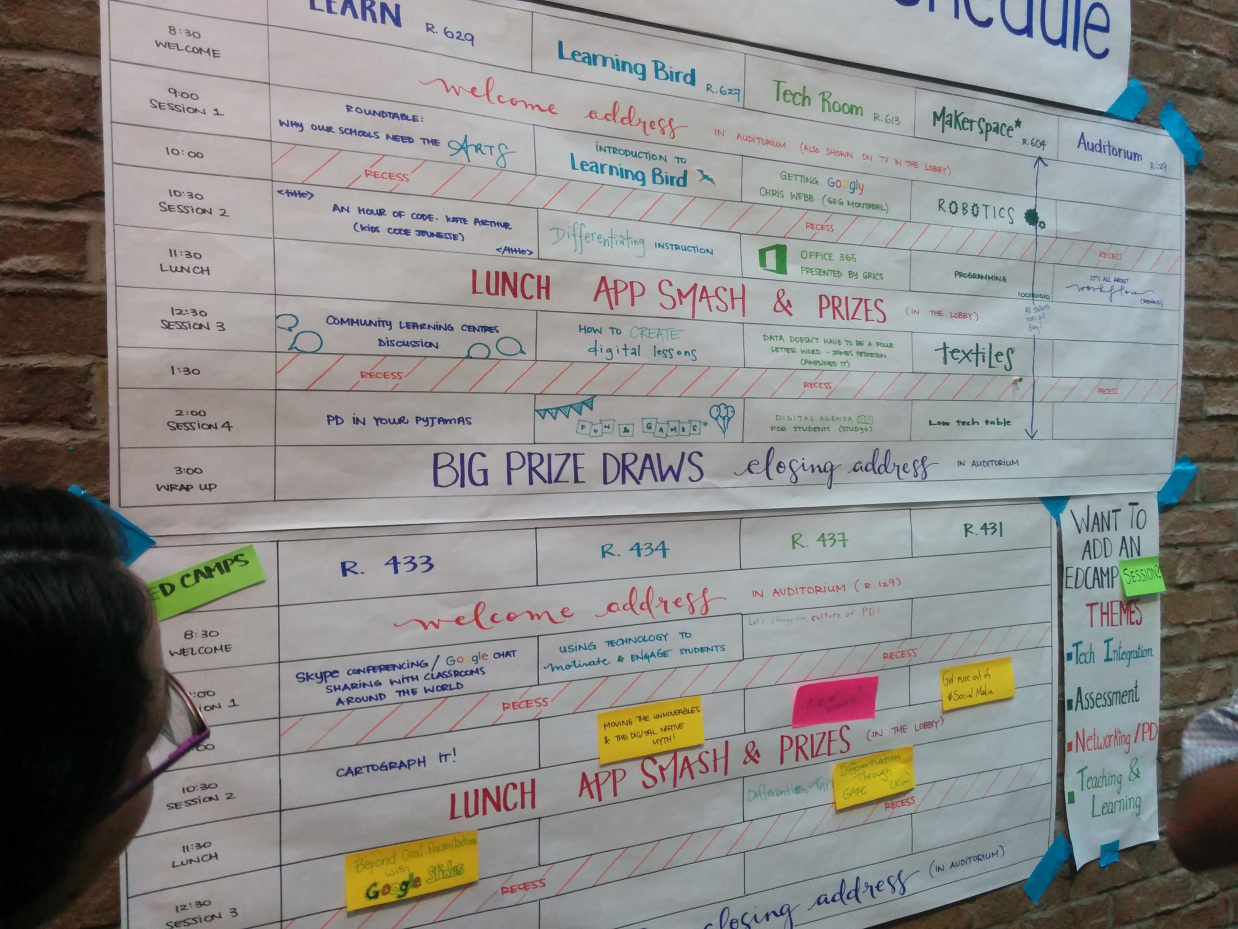 LEARN R.629
8:30
WELCOME
Learning Bird R.627
Tech Room R.613
Makerspace* R.604
Auditorium R.129
welcome address IN AUDITORIUM (ALSO SHOWN ON TV IN THE LOBBY)
9:00
SESSION 1
ROUNDTABLE:
WHY OUR SCHOOLS NEED THE ARTS
INTRODUCTION TO
Learning Bird
GETTING GOOGLY
CHRIS WEBB (GEG MONTREAL)
ROBOTICS
10:00
RECESS
RECESS
RECESS
10:30
SESSION 2
<title>
AN HOUR OF CODE. KATE ARTHUR
(KIDS CODE JEUNESSE)
</title>
Differentiating INSTRUCTION
OFFICE 365
PRESENTED BY GRICS
PROGRAMMING
IT'S ALL ABOUT
workflow
11:30
LUNCH
LUNCH APP SMASH & PRIZES (IN THE LOBBY)
12:30
SESSION 3
COMMUNITY LEARNING CENTRES
DISCUSSION
HOW TO CREATE
digital lessons
DATA DOESN'T HAVE TO BE A FOUR
LETTER WORD - JAMES PETERSON
textiles
1:30
RECESS
RECESS
RECESS
2:00
SESSION 4
PD IN YOUR PYJAMAS
FUN & GAMES*
DIGITAL AGENDA
FOR STUDENTS (STUDYO)
LOW TECH TABLE
3:00
WRAP UP
BIG PRIZE DRAWS closing address IN AUDITORIUM
ED CAMPS
R. 433
R. 434
R. 437
R. 431
8:30
WELCOME
welcome address IN AUDITORIUM (R.129)
SKYPE CONFERENCING / Google CHAT
SHARING WITH CLASSROOMS
AROUND THE WORLD
USING TECHNOLOGY TO
motivate & ENGAGE STUDENTS
Let's change the culture of PD!
RECESS
RECESS
10:30
SESSION 2
CARTOGRAPH IT!
MOVING THE UNMOVEABLES
& THE DIGITAL NATIVE
MYTH!
Get more out of
#Social Media
11:30
LUNCH
LUNCH APP SMASH & PRIZES (IN THE LOBBY)
12:30
SESSION 3
Beyond Oral Presentation
with
Google Slides
Differentiation
Through
GAFE
RECESS
RECESS
closing address (IN AUDITORIUM)
WANT TO
ADD AN
EDCAMP SESSION?
THEMES
Tech Integration
Assessment
Networking / PD
Teaching &
Learning